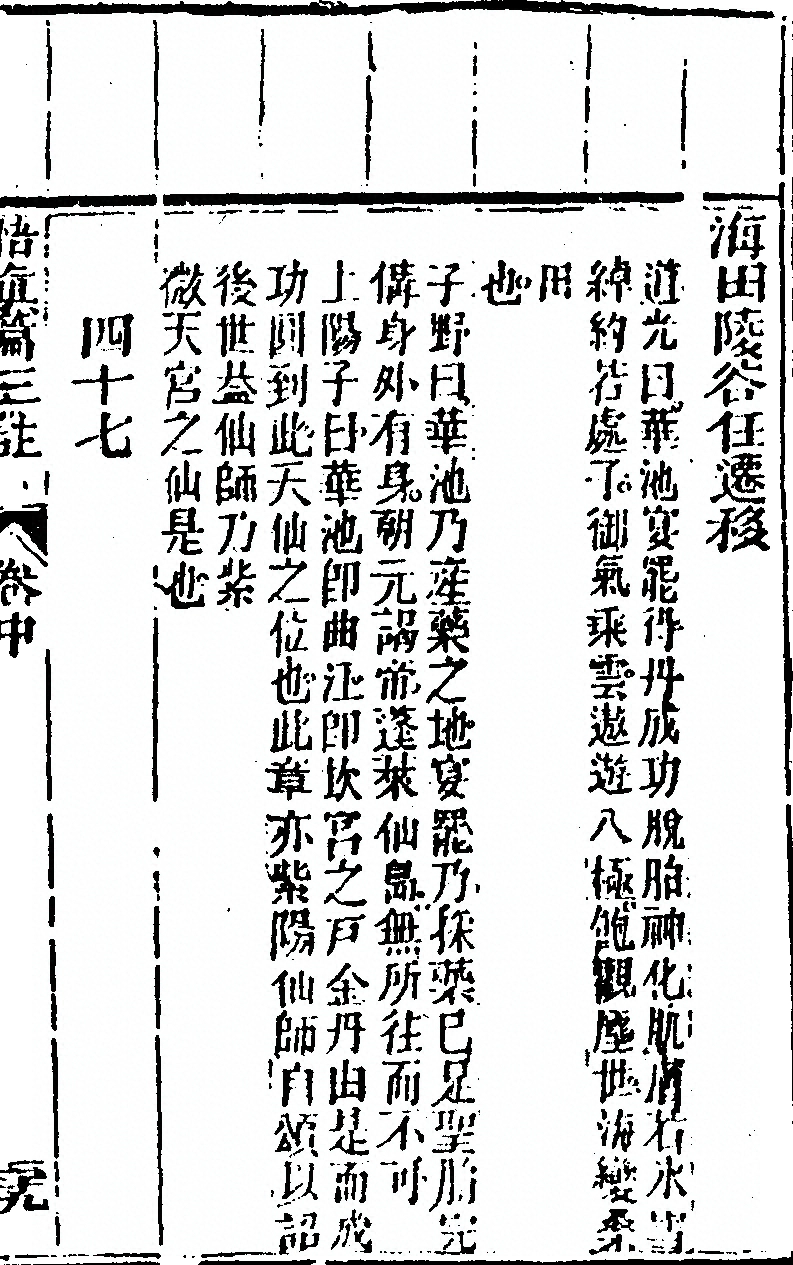 海田陵谷任遷移
道光曰華池宴罷得丹成功脫胎神化肌膚若冰雪
綽約若處子御氣乘雲遨遊八極飽觀塵世海變桑
田
也
子野曰華池乃產藥之地宴罷乃採藥已足聖胎完
備身外有身朝元謁帝蓬萊仙島無所往而不可
上陽子曰華池即曲江即坎宮之戶金丹由是而成
功圓到此天仙之位也此章亦紫陽仙師自頌以詔
後世益仙師乃紫
微天宮之仙是也
四十七
悟真篇三註 卷中